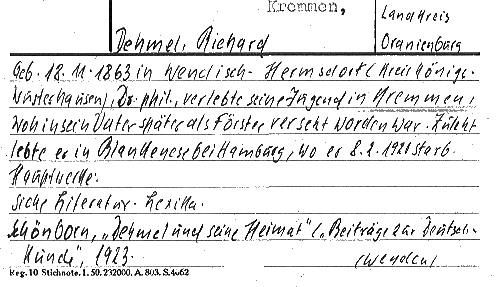 Kremmen,
Landkreis
Oranienburg
Dehmel, Richard
Geb. 18.11.1863 in Wendisch-Hermsdorf (Kreis Königs-
wusterhausen), Dr. phil., verlebte seine Jugend in Kremmen,
wohin sein Vater später als Förster versetzt worden war. Zuletzt
lebte er in Blankenese bei Hamburg, wo er 8.2.1921 starb.
Hauptwerke:
siehe Literatur-Lexika.
Schönborn, „Dehmel und seine Heimat“ („Beiträge zur Deutsch-
Kunde“, 1923.
(Wenden)
Reg. 10 Stichnote. 1. 50. 232000. A. 803. S. 4062